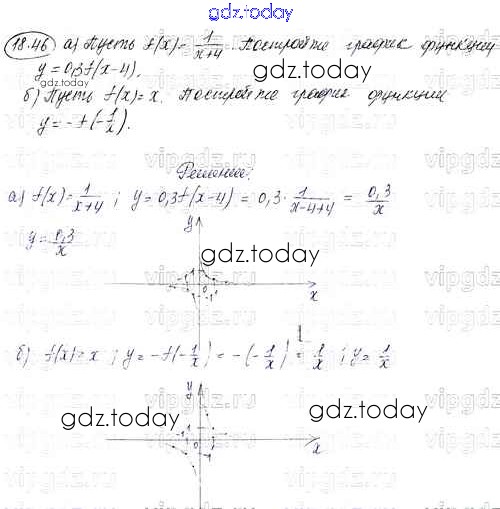 gdz.today
18.46 а) Пусть f(x) = 1/(x+4). Постройте график функции
y = 0,3f(x-4).
gdz.today
б) Пусть f(x) = x. Постройте график функции
y = -f(-1/x).
vipgdz.ru
Решение:
а) f(x) = 1/(x+4) ; y = 0,3f(x-4) = 0,3 · 1/(x-4+4) = 0,3/x
y = 0,3/x
y
gdz.today
-1 0 1
-1
x
б) f(x) = x ; y = -f(-1/x) = -(-1/x) = 1/x ; y = 1/x
y
gdz.today gdz.today
1
-1 0 1
-1
x